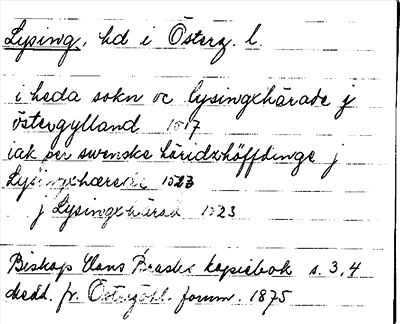 Lysing, hd i Österg. l.
i heda sokn oc lysingxhärade j
östergylland 1517
iak per swenske häridzhöffdinge j
Lysingxhærede 1523
j Lysingxhärad 1523
Biskop Hans Brasks kopiebok s. 3, 4
medd. fr. Östergötl. fornm. 1875